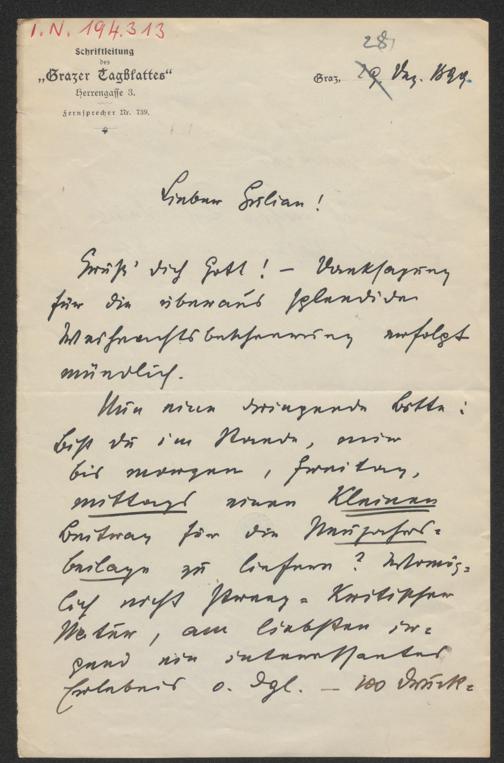 I.N. 194.313
Schriftleitung
des
„Grazer Tagblattes“
Herrengasse 3.
Fernsprecher Nr. 739.
28/
Graz, 29. Dez. 1899.
Lieber Julian!
Grüß' dich Gott! – Danksagung
für die überaus splendide
Weihnachtsbescheerung erfolgt
mündlich.
Nun eine dringende Bitte:
Bist du im Stande, mir
bis morgen, Freitag,
mittags einen kleinen
Beitrag für die Neujahrs=
beilage zu liefern? Womög=
lich nicht streng=kritischer
Natur, am liebsten ir=
gend ein interessantes
Erlebnis o. dgl. – 100 Druck=